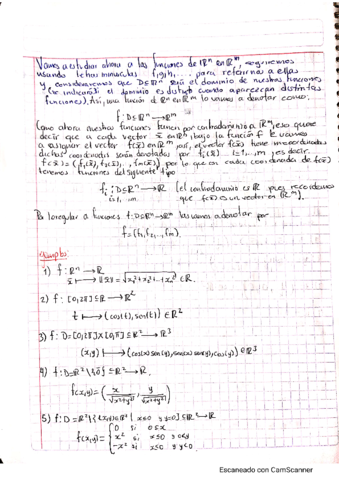 Vamos a estudiar ahora a las funciones de ℝⁿ en ℝᵐ, seguiremos
usando letras minúsculas f, g, h, ... para referirnos a ellas
y consideraremos que D⊆ℝⁿ será el dominio de nuestras funciones
(se indicará si el dominio es distinto cuando aparezcan distintas
funciones). Así, una función de ℝⁿ en ℝᵐ lo vamos a denotar como:
f: D⊆ℝⁿ → ℝᵐ
Como ahora nuestras funciones tienen por contradominio a ℝᵐ, eso quiere
decir que a cada vector x̄ en ℝⁿ, bajo la función f le vamos
a asignar el vector f(x̄) en ℝᵐ, así, el vector f(x̄) tiene m coordenadas
dichas coordenadas serán denotadas por fᵢ(x̄) i=1,...,m, es decir,
f(x̄) = (f₁(x̄), f₂(x̄), ..., fₘ(x̄)) por lo que en cada coordenada de f(x̄)
tenemos funciones del siguiente tipo
fᵢ: D⊆ℝⁿ → ℝ (el contradominio es ℝ pues recordemos
i=1,...,m que f(x̄) es un vector en ℝᵐ).
Por lo regular a funciones f: D⊆ℝⁿ→ℝᵐ las vamos a denotar por
f=(f₁, f₂, ..., fₘ).
Ejemplo:
1) f: ℝⁿ → ℝ
x̄ ↦ ||x̄|| = √(x₁²+x₂²+...+xₙ²) ∈ℝ.
2) f: [0,2π]⊆ℝ → ℝ²
t ↦ (cos(t), sen(t)) ∈ℝ².
3) f: D=[0,2π]×[0,π]⊆ℝ² → ℝ³
(x,y) ↦ (cos(x)sen(y), sen(x)sen(y), cos(y)) ∈ℝ³
4) f: D=ℝ²\{0̄} ⊆ℝ² → ℝ.
f(x,y) = (x/√(x²+y²), y/√(x²+y²))
5) f: D=ℝ²\{(x,y)∈ℝ² | x≤0 y y=0}⊆ℝ² → ℝ
f(x,y) = { 0 si 0≤x
x² si x≤0 y 0<y
-x² si x≤0 y y<0
Escaneado con CamScanner